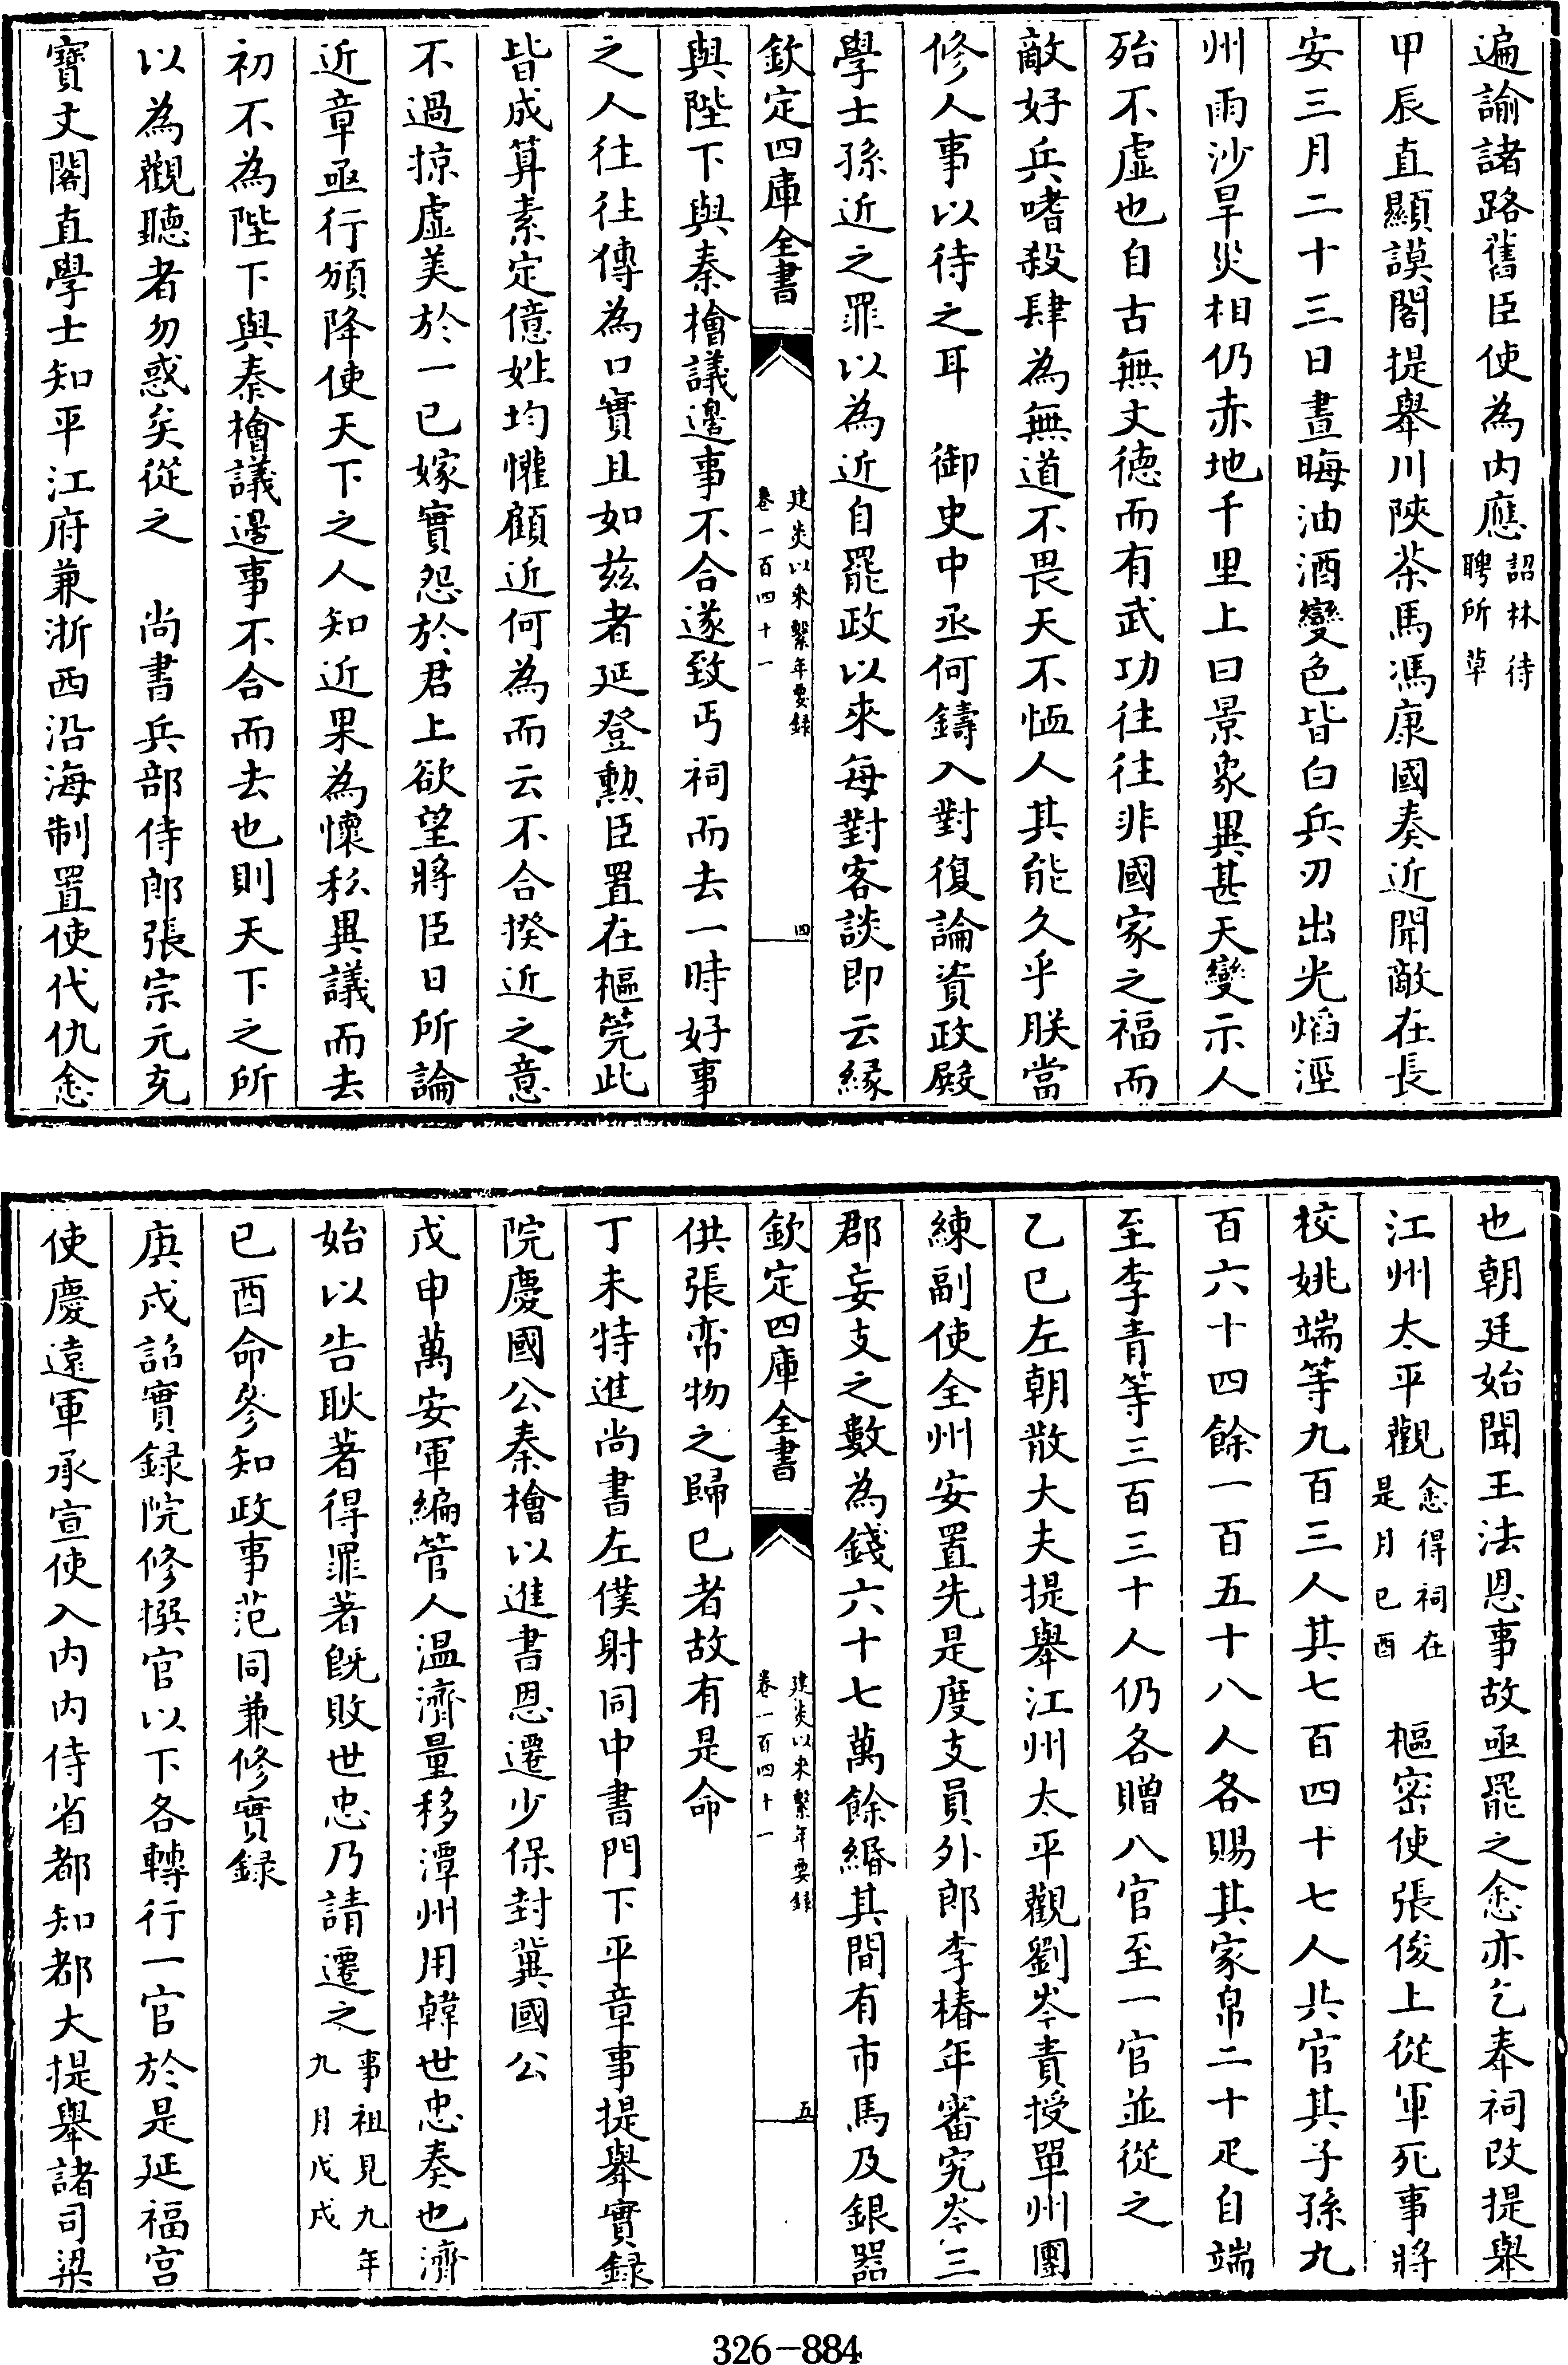 遍諭諸路舊臣使為内應詔林待聘所草
甲辰直顯謨閣提舉川陝茶馬馮康國奏近聞敵在長
安三月二十三日晝晦油酒變色皆白兵刃出光熖涇
州雨沙旱災相仍赤地千里上曰景象異甚天變示人
殆不虚也自古無文德而有武功往往非國家之福而
敵好兵嗜殺肆為無道不畏天不恤人其能久乎朕當
修人事以待之耳　御史中丞何鑄入對復論資政殿
學士孫近之罪以為近自罷政以來每對客談即云緣
欽定四庫全書
建炎以來繫年要録
卷一百四十一
四
與陛下與秦檜議邊事不合遂致丐祠而去一時好事
之人往往傳為口實且如兹者延登勲臣置在樞筦此
皆成算素定億姓均懽顧近何為而云不合揆近之意
不過掠虚美於一已嫁實怨於君上欲望將臣日所論
近章亟行頒降使天下之人知近果為懷私異議而去
初不為陛下與秦檜議邊事不合而去也則天下之所
以為觀聽者勿惑矣從之　尚書兵部侍郎張宗元充
寶文閣直學士知平江府兼浙西沿海制置使代仇悆
也朝廷始聞王法恩事故亟罷之悆亦乞奉祠改提舉
江州太平觀悆得祠在是月已酉　樞密使張俊上從軍死事將
校姚端等九百三人其七百四十七人共官其子孫九
百六十四餘一百五十八人各賜其家帛二十疋自端
至李青等三百三十人仍各贈八官至一官並從之
乙巳左朝散大夫提舉江州太平觀劉岑責授單州團
練副使全州安置先是度支員外郎李椿年審究岑三
郡妄支之數為錢六十七萬餘緡其間有市馬及銀器
欽定四庫全書
建炎以來繫年要録
卷一百四十一
五
供張帟物之歸已者故有是命
丁未特進尚書左僕射同中書門下平章事提舉實録
院慶國公秦檜以進書恩遷少保封冀國公
戊申萬安軍編管人温濟量移潭州用韓世忠奏也濟
始以告耿著得罪著既敗世忠乃請遷之事祖見九年九月戊戌
已酉命參知政事范同兼修實録
庚戌詔實録院修撰官以下各轉行一官於是延福宫
使慶遠軍承宣使入内内侍省都知都大提舉諸司梁
326-884